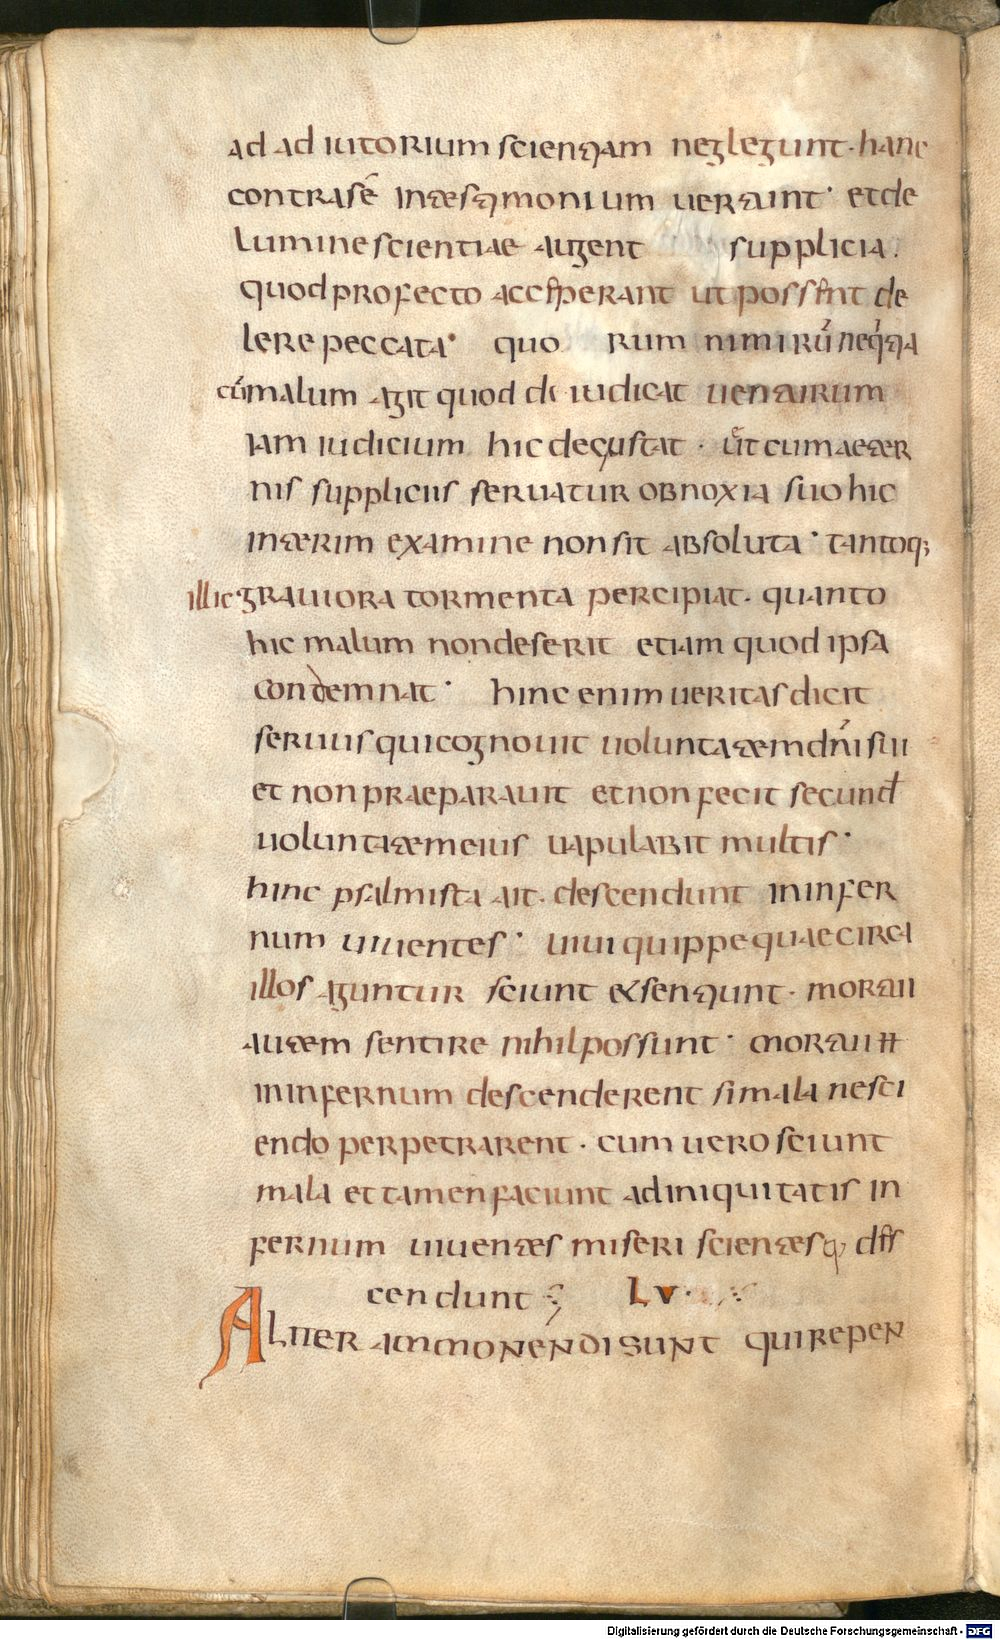 ad adiutorium scientiam neglegunt · hanc
contra sē in testimonium uertunt · et de
lumine scientiae augent supplicia ·
quod profecto acceperant ut possent de
lere peccata · quo rum nimirū neq̇ tia
cū malum agit quod diiudicat uenturum
iam iudicium hic degustat · ut cum aeter
nis suppliciis seruatur obnoxia suo hic
interim examine non sit absoluta · tantoq;
illic grauiora tormenta percipiat · quanto
hic malum non deserit etiam quod ipsa
condemnat · hinc enim ueritas dicit
seruus qui cognouit uoluntatem dn̄i sui
et non praeparauit et non fecit secund
uoluntatem eius uapulabit multis ·
hinc psalmista ait · descendunt in infer
num uiuentes · uiui quippe quae circa
illos aguntur sciunt & sentiunt · mortui
autem sentire nihil possunt · mortui H
in infernum descenderent si mala nesci
endo perpetrarent · cum uero sciunt
mala et tamen faciunt ad iniquitatis in
fernum uiuentes miseri scientesq; des
cendunt LV ·
Aliter ammonendi sunt qui repen
Digitalisierung gefördert durch die Deutsche Forschungsgemeinschaft - DFG